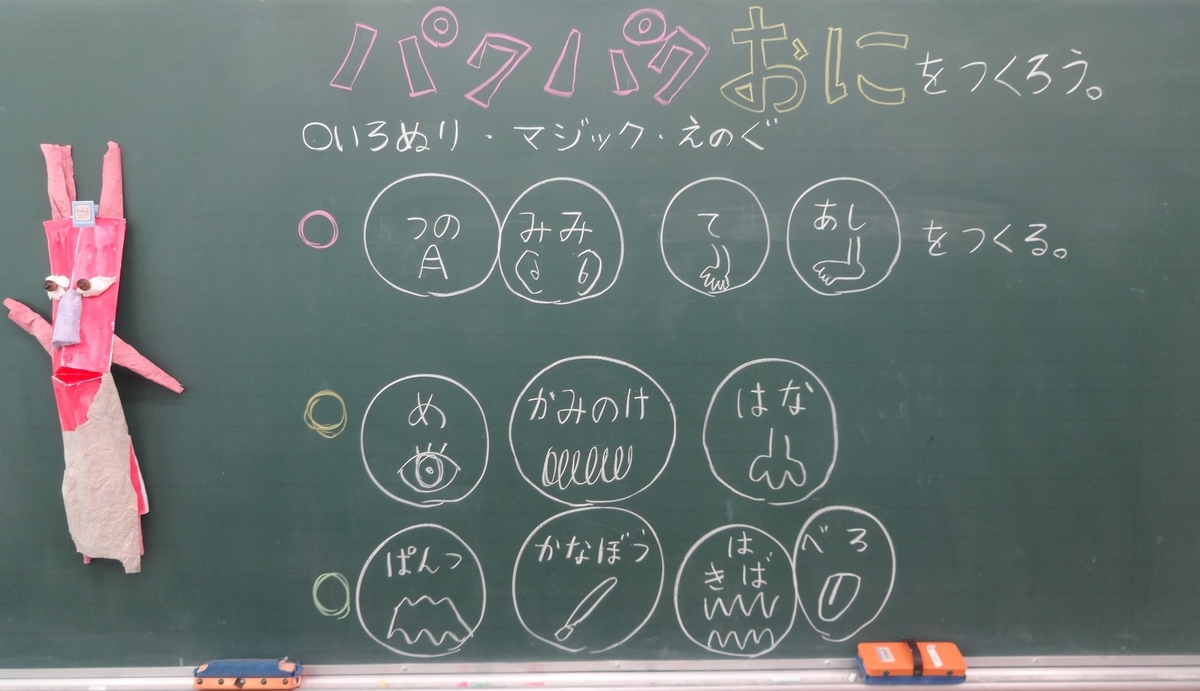 パクパクおにをつくろう。
○いろぬり・マジック・えのぐ
○ つの みみ て あし をつくる。
○ め かみのけ はな
○ ぱんつ かなぼう は きば べろ